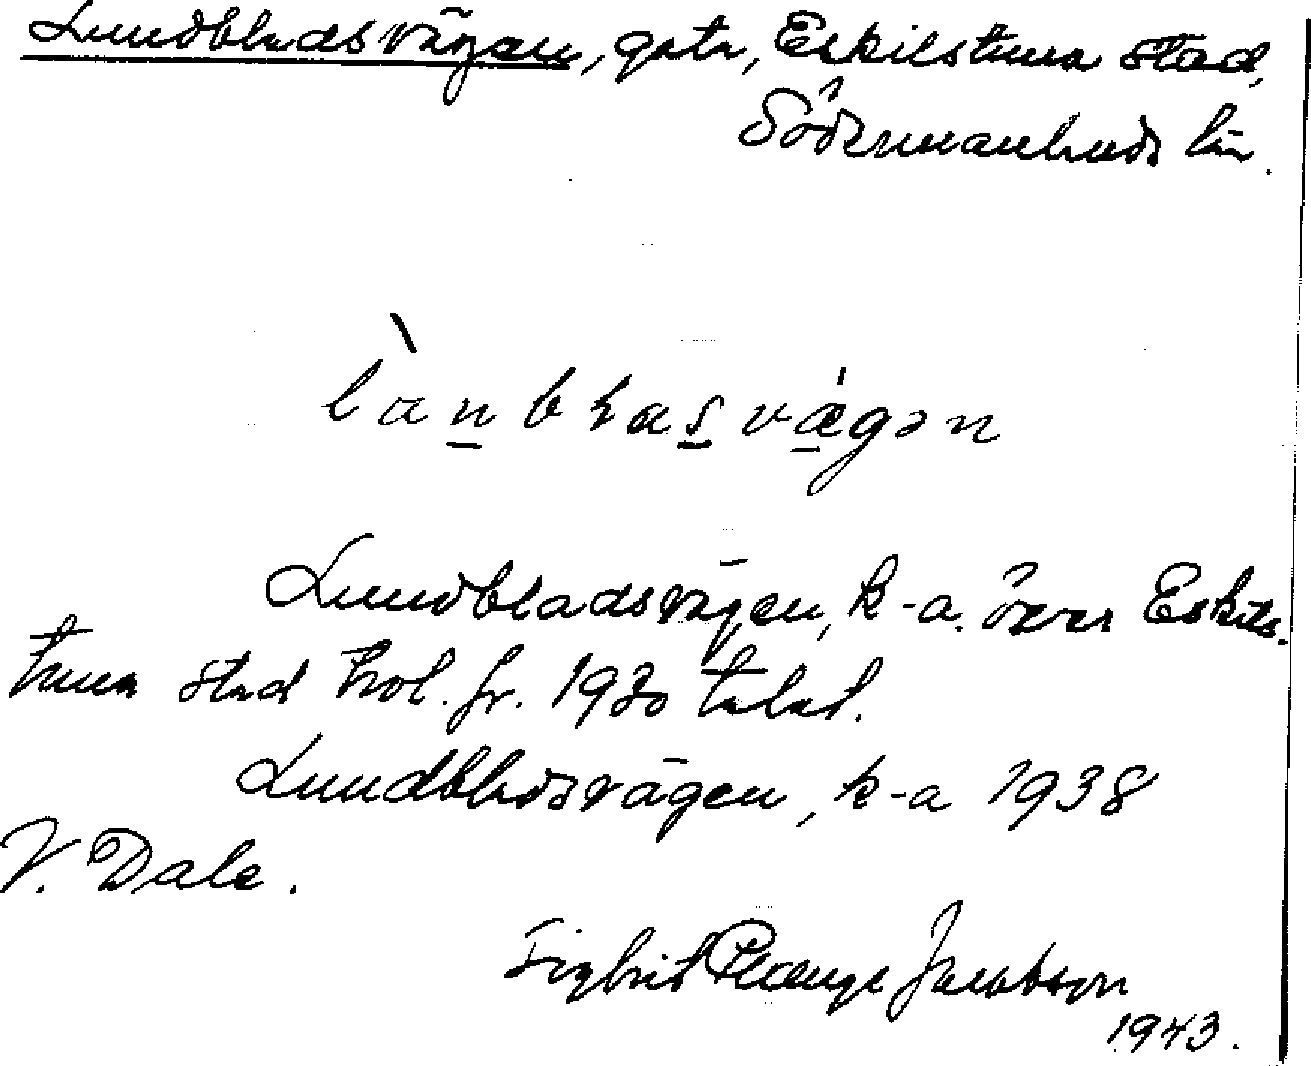 Lundbladsvägen, gata, Eskilstuna stad,
Södermanlands län.
lanblasvägən
Lundbladsvägen, k-a. över Eskils-
tuna stad trol. fr. 1930 talet.
Lundbladsvägen, k-a 1938
V. Dale.
Sigbrit Plænge Jacobson
1943.